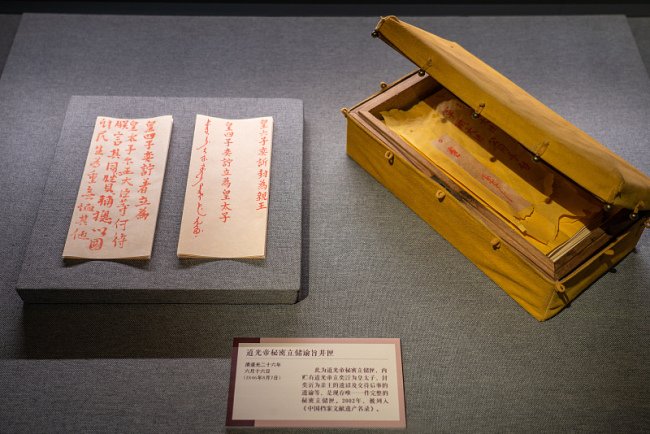 皇四子奕詝著立為
皇太子尔王大臣等何待
朕言其同心贊輔總以國
計民生為重無恤其他
皇六子奕訢封為親王
皇四子奕詝立為皇太子
道光帝秘密立储谕旨并匣
清道光二十六年
六月十六日
（1846年8月7日）
此为道光帝秘密立储匣，内
贮有道光帝立奕詝为皇太子、封
奕訢为亲王的遗以及交待后事的
遗谕等，是现存唯一一件完整的
秘密立储匣。2002年，被列入
《中国档案文献遗产名录》。